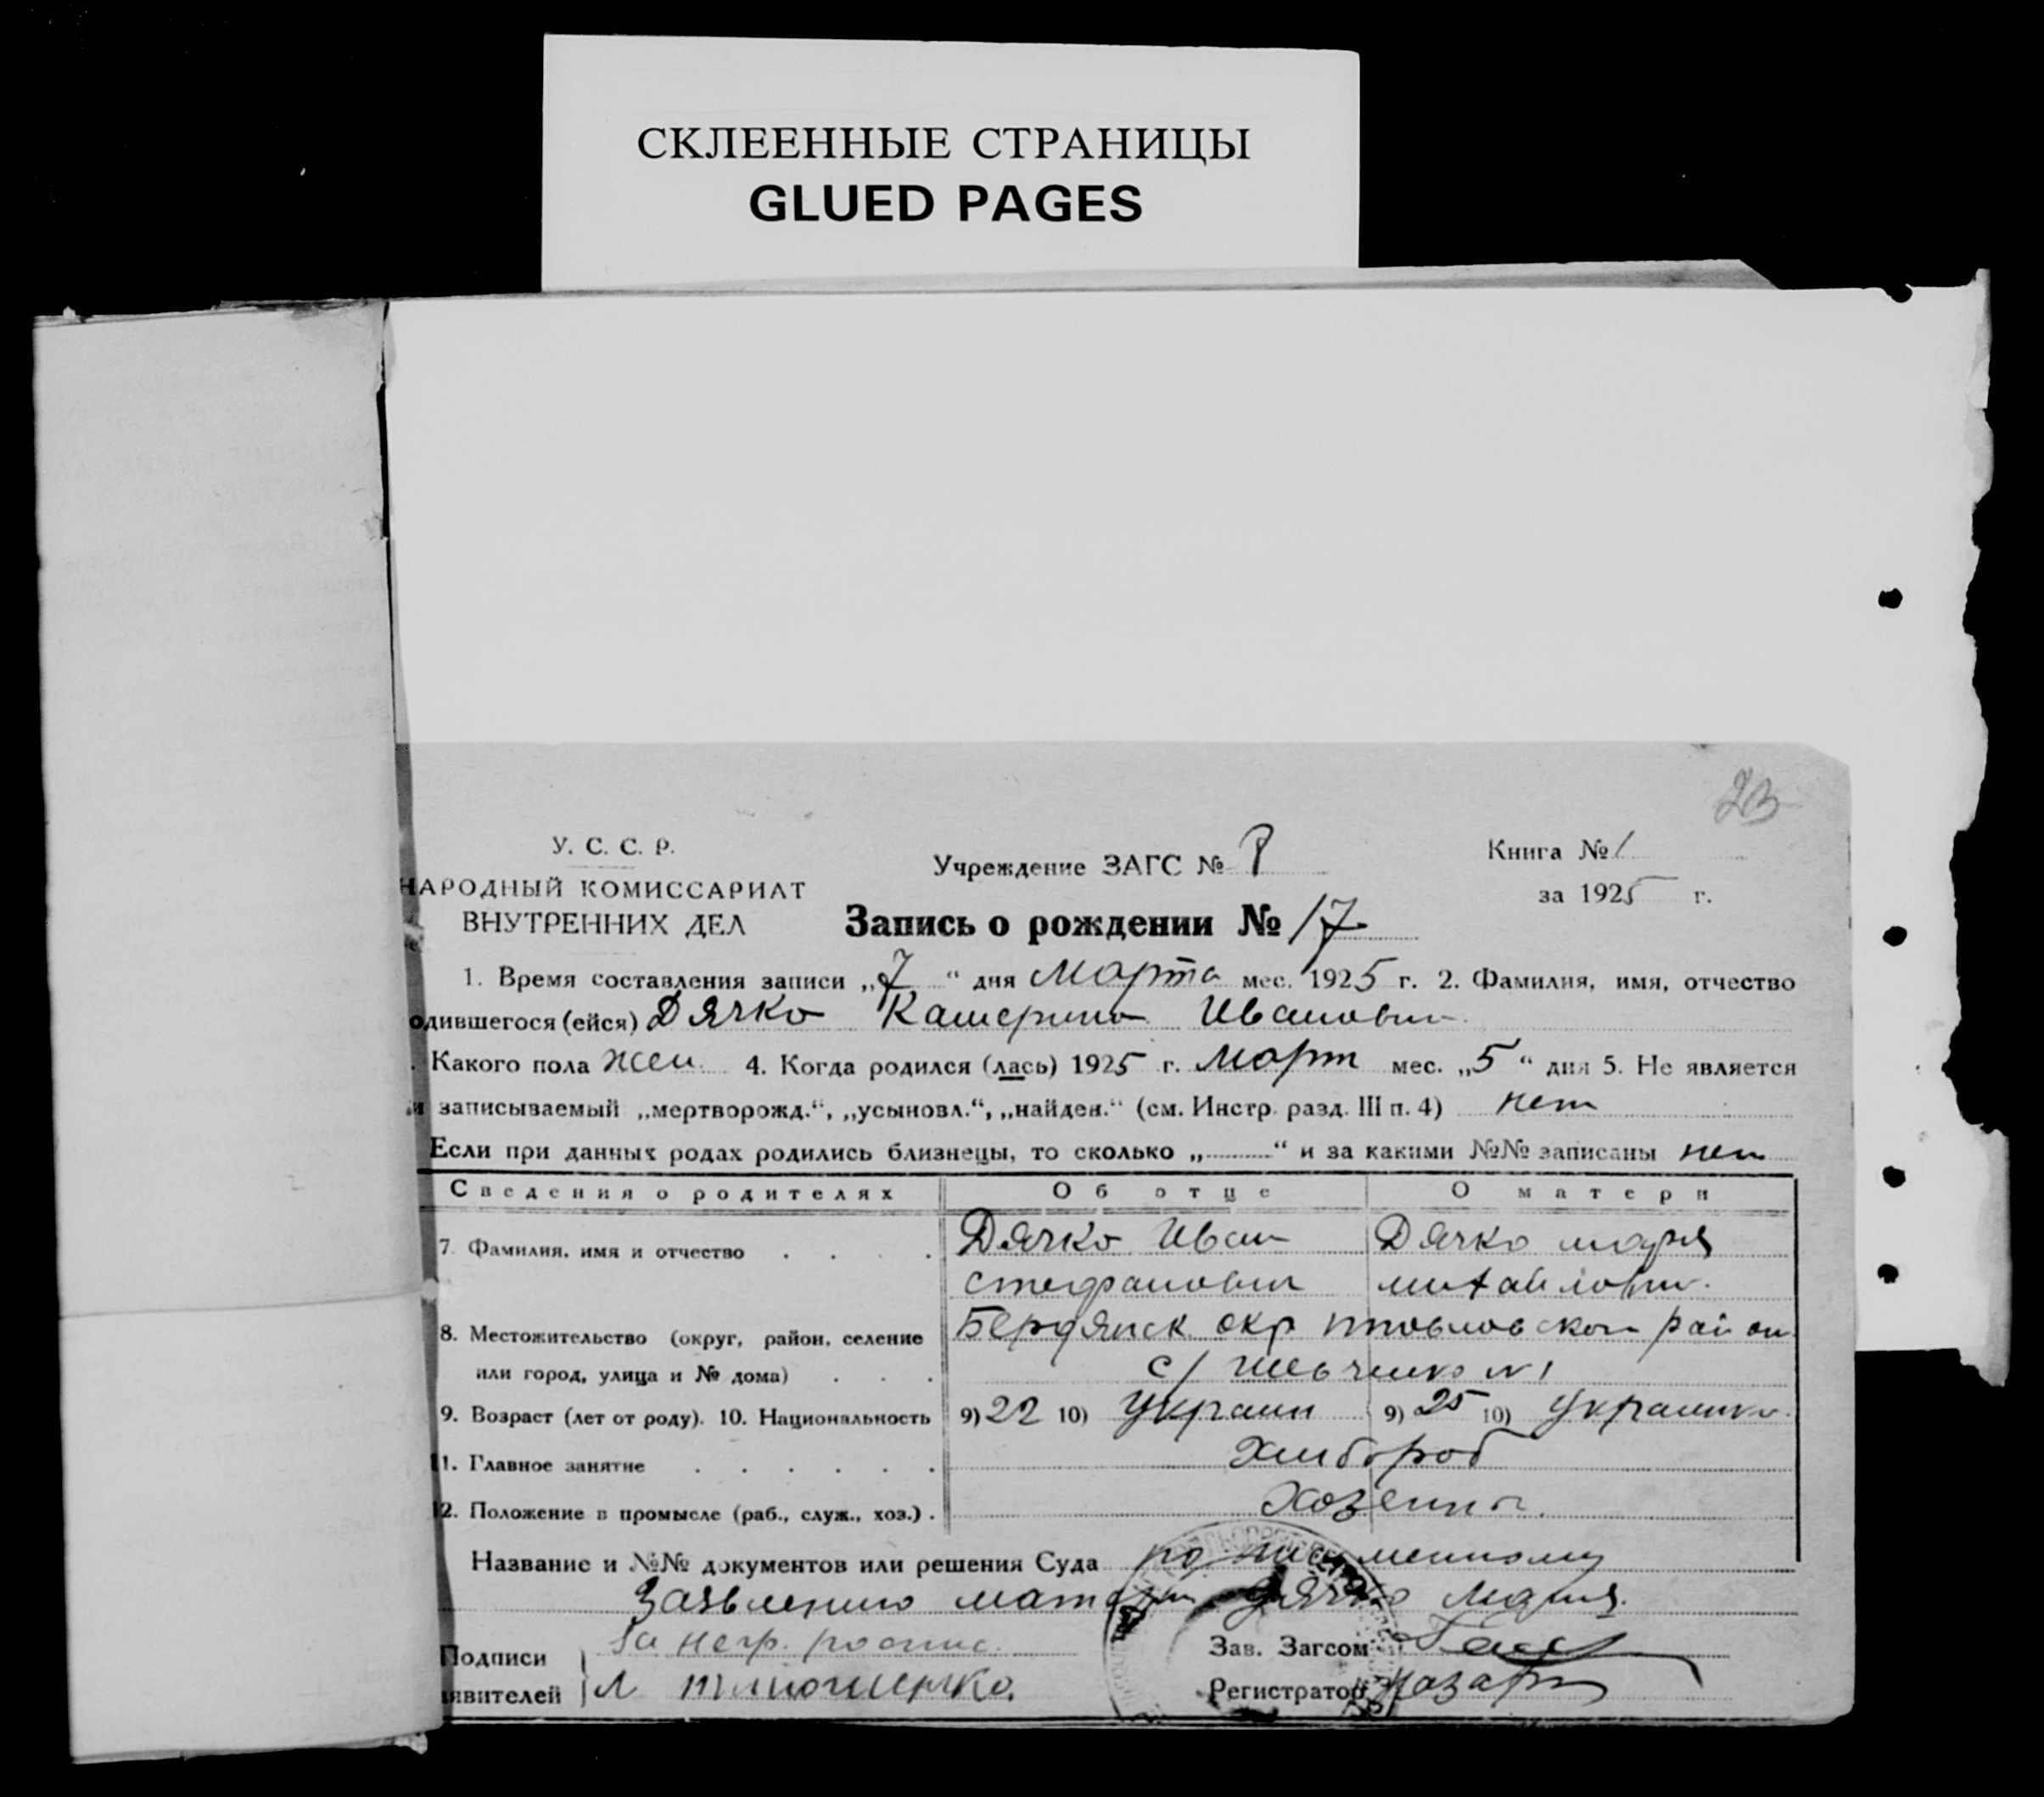 СКЛЕЕННЫЕ СТРАНИЦЫ
GLUED PAGES
23
У. С. С. Р.
НАРОДНЫЙ КОМИССАРИАТ
ВНУТРЕННИХ ДЕЛ
Учреждение ЗАГС №
Книга № 1
за 1925 г.
Запись о рождении № 17
1. Время составления записи „7“ дня Марта мес. 1925 г. 2. Фамилия, имя, отчество
одившегося (ейся) Дячко Катерина Ивановн
Какого пола жен. 4. Когда родился (лась) 1925 г. Март мес. „5“ дня 5. Не является
и записываемый „мертворожд.“, „усыновл.“, „найден.“ (см. Инстр. разд. III п. 4) нет
Если при данных родах родились близнецы, то сколько „ “ и за какими №№ записаны нет
Сведения о родителях Об отце О матери
7. Фамилия, имя и отчество Дячко Иван Дячко мария
стефанович михайловн.
8. Местожительство (округ, район, селение Бердянск окр район
или город, улица и № дома) с/ N 1
9. Возраст (лет от роду). 10. Национальность 9) 22 10) Украин 9) 25 10) Украинка
11. Главное занятие Хлибороб
12. Положение в промысле (раб., служ., хоз.)
Название и №№ документов или решения Суда по письменному
Заявлению матери Дячко Мария.
Подписи За негр. роспис.
явителей
Зав. Загсом
Регистратор